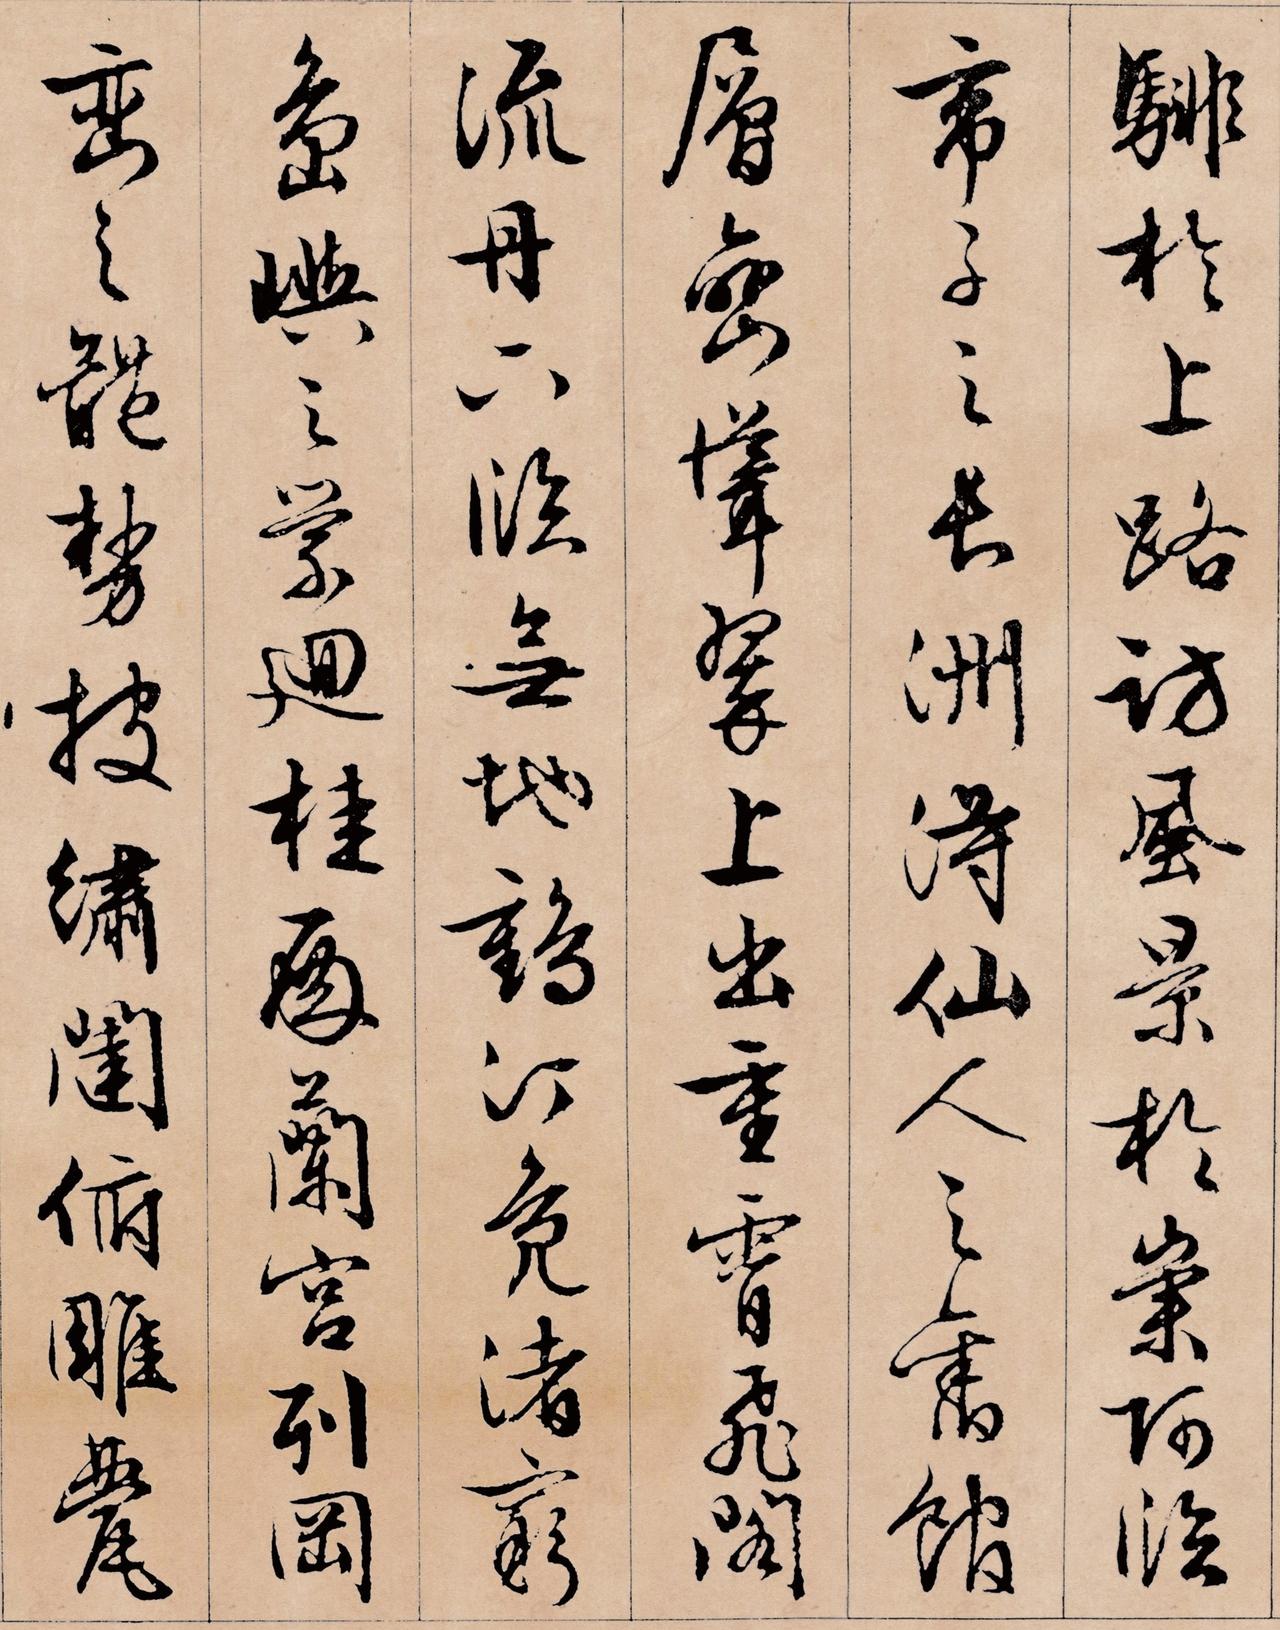 騑於上路訪風景於崇阿臨
帝子之長洲得仙人之舊館
層巒聳翠上出重霄飛閣
流丹下臨無地鶴汀鳧渚窮
島嶼之縈廻桂殿蘭宮列岡
巒之體勢披繡闥俯雕甍